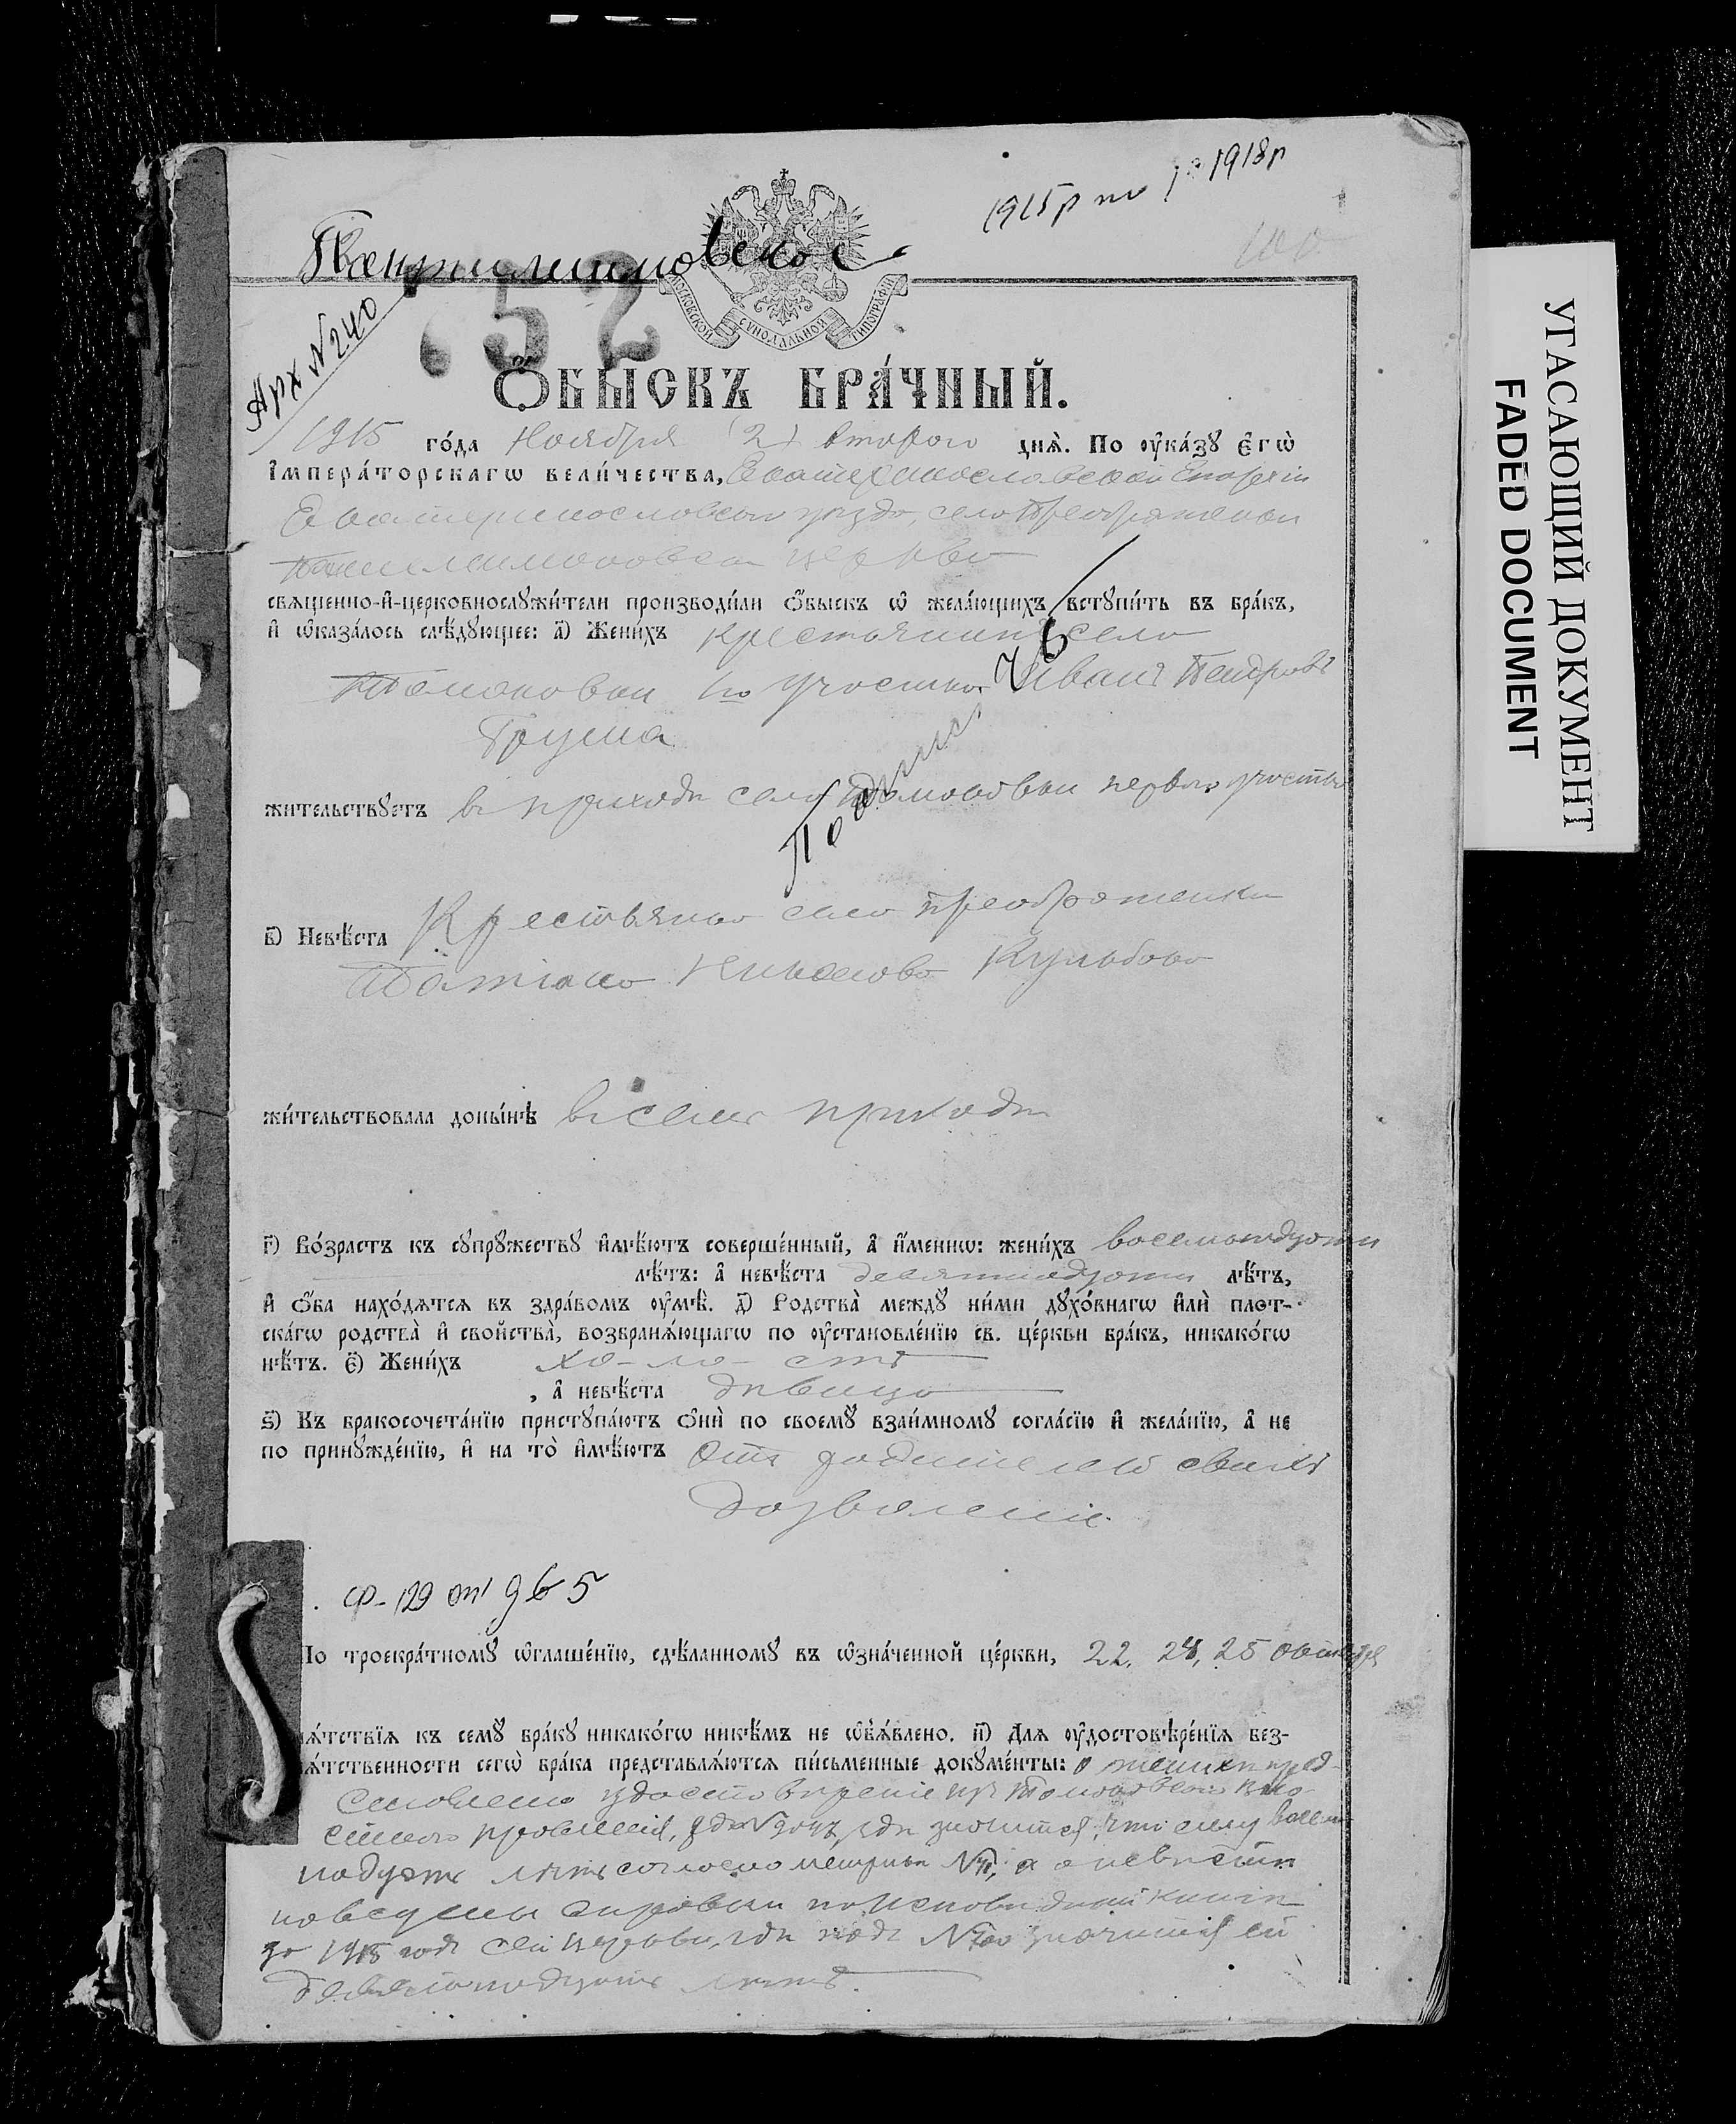 1915р по 1918р
100
Пантилимоновское
Арх №240
52
МОСКОВСКОЙ СУНОДАЛЬНОЙ ТИПОГРАФІИ
Ѻ҆БЫСКЪ БРА́ЧНЫЙ.
1915 го́да Ноября (2) второго днѧ̀. По ᲂу҆ка́зꙋ є҆гѡ̀
І҆мпера́торскагѡ вели́чества, Екатеринославской Епархіи
Екатеринославского уезда, село Преображенки
церкви
свѧщенно-и҆-церковнослꙋжи́тели производи́ли ѻ҆́быскъ ѡ҆ жела́ющихъ встꙋпи́ть въ бра́къ,
и҆ ѡ҆каза́лось слѣ́дꙋющее: а҃) Жени́хъ крестьянинъ села
Томаковки 1го участка Иванъ Петровъ
Груша
жи́тельствꙋетъ въ приходѣ села Томаковки первого участка
в҃) Невѣ́ста Крестьянка села Преображенки
Татіана
жи́тельствовала доны́нѣ въ семъ приходѣ
г҃) Во́зрастъ къ сꙋпрꙋ́жествꙋ и҆мѣ́ютъ соверше́нный, а҆ и҆́меннѡ: жени́хъ восемнадцати
лѣ́тъ: а҆ невѣ́ста девятнадцати лѣ́тъ,
и҆ ѻ҆́ба нахо́дѧтсѧ въ здра́вомъ ᲂу҆мѣ̀. д҃) Родства̀ междꙋ̀ ни́ми дꙋхо́внагѡ и҆лѝ плот-
ска́гѡ родства̀ и҆ свойства̀, возбранѧ́ющагѡ по ᲂу҆становле́нїю св. це́ркви бра́къ, никако́гѡ
нѣ́тъ. є҃) Жени́хъ хо-ло-стъ
, а҆ невѣ́ста дѣвица
ѕ҃) Къ бракосочета́нїю пристꙋпа́ютъ ѻ҆нѝ по своемꙋ̀ взаи́мномꙋ согла́сїю и҆ жела́нїю, а҆ не
по принꙋжде́нїю, и҆ на то̀ и҆мѣ́ютъ отъ родителей своихъ
дозволеніе.
Ф-129 оп 9 б 5
По троекра́тномꙋ ѡ҆глаше́нїю, сдѣ́ланномꙋ въ ѡ҆зна́ченной це́ркви, 22, 24, 25 октября
ѧ́тствїѧ къ семꙋ̀ бра́кꙋ никако́гѡ никѣ́мъ не ѡ҆б̾ѧ́влено. и҃) Длѧ ᲂу҆достовѣре́нїѧ без-
ѧ́тственности сегѡ̀ бра́ка представлѧ́ютсѧ пи́сьменные докꙋме́нты: о женихѣ пред-
ставлено удостовереніе изъ Томаковского воло-
стного правленія, гдѣ значится, что ему восем-
надцать лѣтъ согласно метрики № а о невѣстѣ
справки по Исповѣдной книгѣ
за 1915 годъ сей церкви, гдѣ подъ № значится ей
девятнадцать лѣтъ.
УГАСАЮЩИЙ ДОКУМЕНТ
FADED DOCUMENT